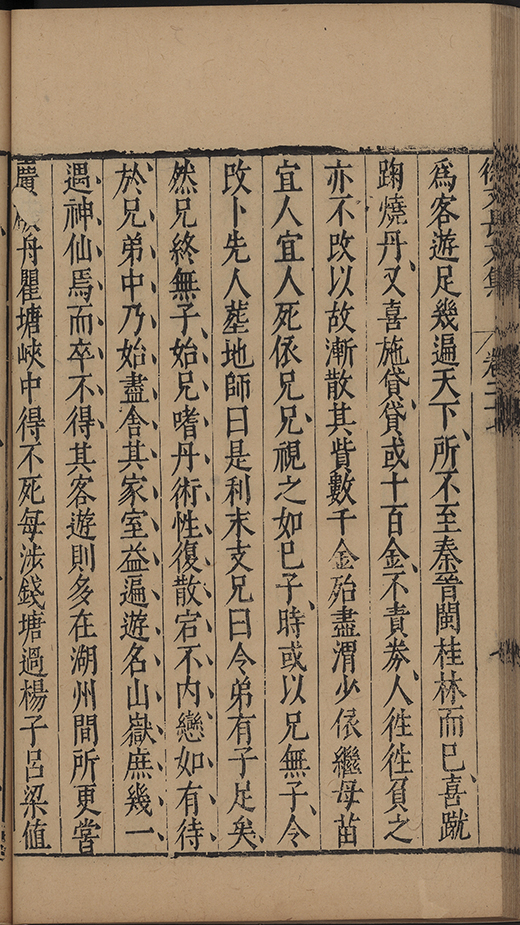 徐文長文集 卷二十七
為客遊足幾遍天下、所不至秦晉閩桂林而已、喜蹴
踘燒丹、又喜施貸、貸或十百金、不責券、人徃徃負之
亦不改以故漸散其貲數千金殆盡渭少依繼母苗
宜人宜人死依兄、兄視之如已子、時或以兄無子、令
改卜先人塟地師曰是利末支兄曰令弟有子足矣、
然兄終無子、始兄嗜丹術性復散宕不內戀如有待
於兄弟中乃始盡舍其家室益遍遊名山嶽庶幾一
遇神仙焉而卒不得其客遊則多在湖州間所更嘗
廣 舟瞿塘峽中得不死每涉錢塘過楊子呂梁值